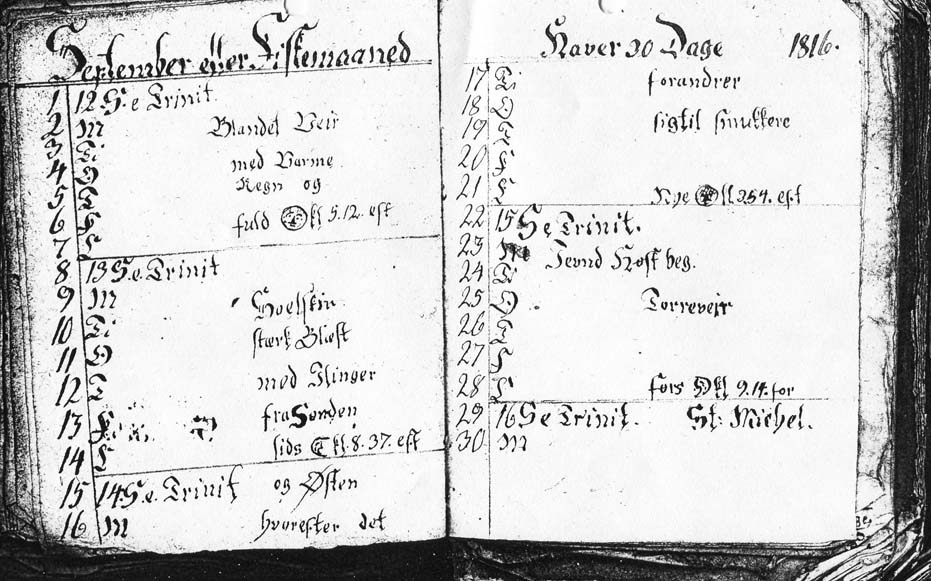 September eller Fiskemaaned
1 12 S. e Trinit.
2 M Blandet Veir
3 Ti
4 O med Varme
5 T Regn og
6 F fuld kl 5.12. eft
7 L
8 13 S. e. Trinit
9 M Soelskin
10 Ti stærk Blæst
11 O
12 T med Ilinger
13 F fra Sønden
14 L sids kl. 8. 37. eft
15 14 S. e. Trinit og Østen
16 M hvorefter det
Haver 30 Dage 1816.
17 Ti forandrer
18 O
19 T sigtil smukkere
20 F
21 L Nye kl 2 54. eft
22 15 S e Trinit.
23 M Jevnd Høst beg.
24 Ti
25 O Torreveir
26 T
27 F
28 L førs kl 9. 14. for
29 16 S e Trinit. St: Michel.
30 M